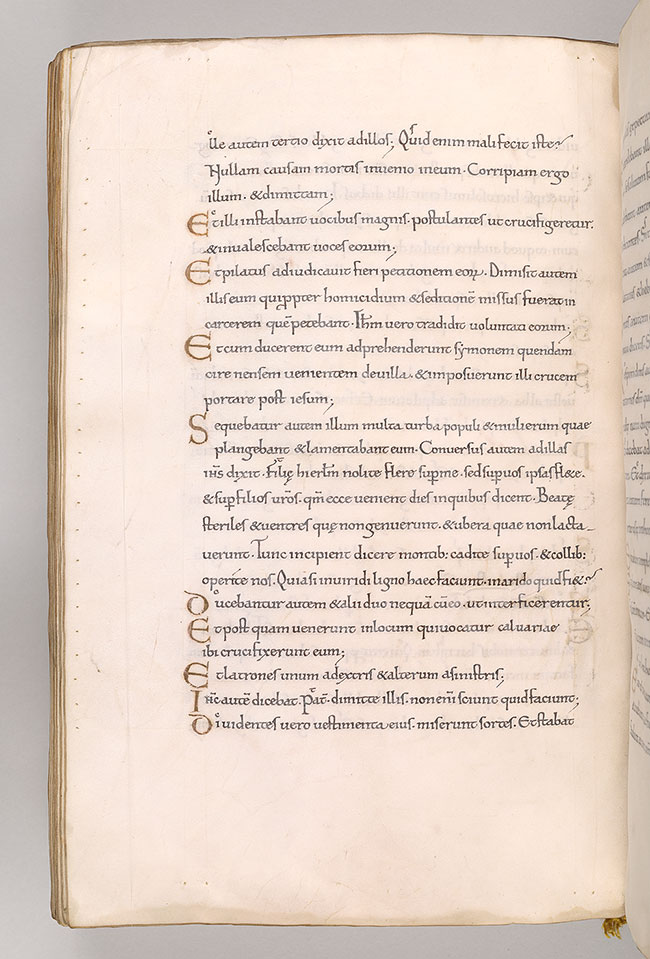 Ille autem tertio dixit adillos; Quid enim mali fecit iste?
Nullam causam mortis invenio ineum. Corripiam ergo
illum. &dimittam;
Etilli instabant uocibus magnis. postulantes ut crucifigeretur.
&inualescebant uoces eorum;
Etpilatus adiudicauit fieri petitionem eoꝝ. Dimisit autem
illis eum qui ꝓpter homicidium &seditionē missus fuerat in
carcerem quē petebant. Ihm̄ vero tradidit voluntati eorum;
Etcum ducerent eum adprehenderunt symonem quendam
cire nensem uenientem deuilla. &imposuerunt illi crucem
portare post iesum;
Sequebatur autem illum multa turba populi &mulierum quae
plangebant &lamentabant eum. Conversus autem adillas
ihs̄ dixit. Filię hierlm̄ nolite flere suꝑme. sed suꝑuos ipsas fl&e.
&suꝑ filios ur̄os. qm̄ ecce uenient dies inquibus dicent. Beatę
steriles &uentres quę nongenuerunt. &ubera quae nonlacta-
uerunt. Tunc incipient dicere montib: cadite suꝑuos. &collib:
operite nos. Quia si inuiridi ligno haec faciunt. inarido quid fi&?
Ducebantur autem &alii duo nequā cū eo. ut inter ficerentur;
Etpost quam uenerunt inlocum qui uocatur caluariae
ibi crucifixerunt eum;
Etlatrones unum adextris &alterum asinistris;
Ihs̄ autē dicebat. Pat̄. dimitte illis. non enī sciunt quid faciunt;
Diuidentes uero uestimenta eius. miserunt sortes. Etstabat